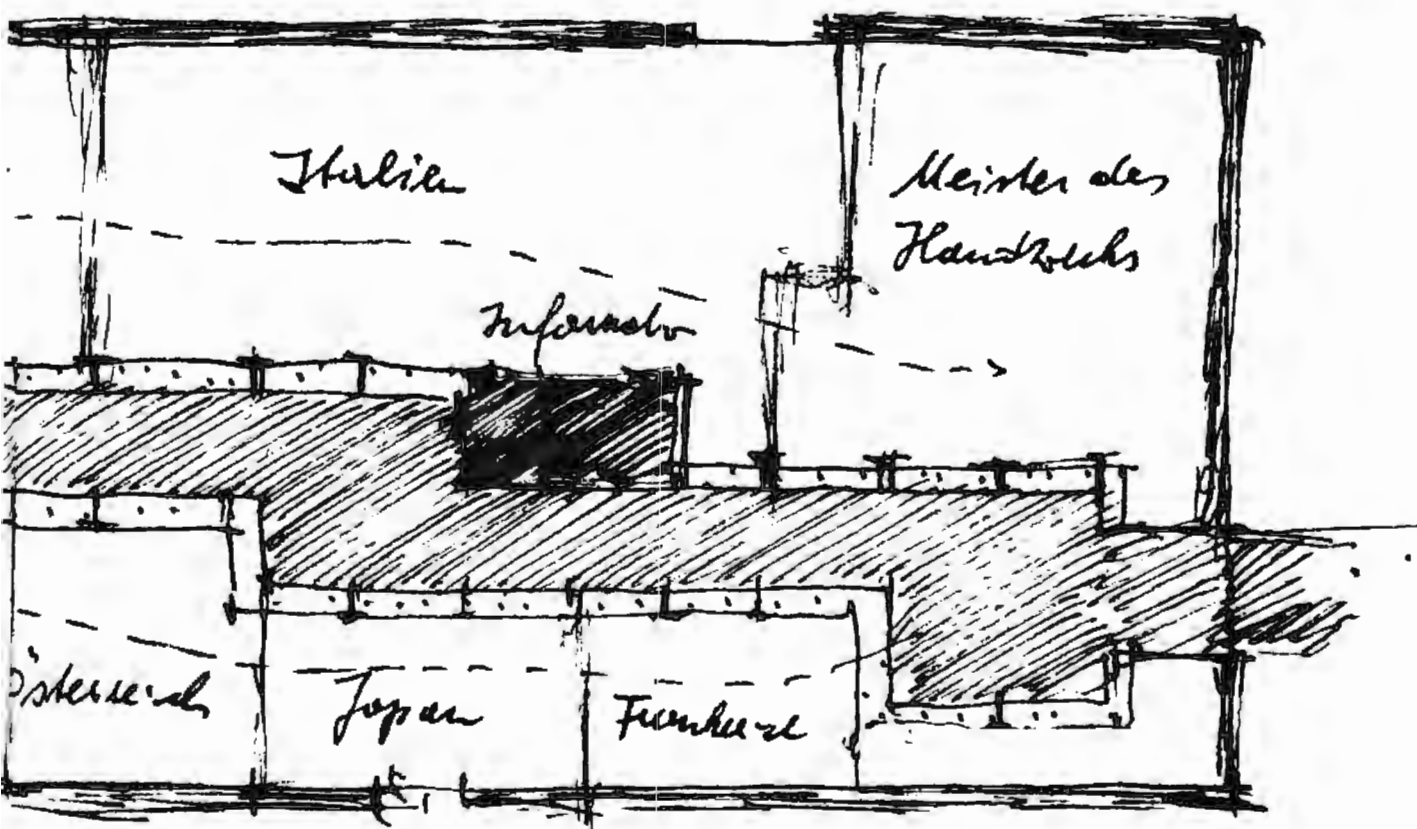 Italien
Meister des
Handwerks
Information
Österreich
Japan
Frankreich